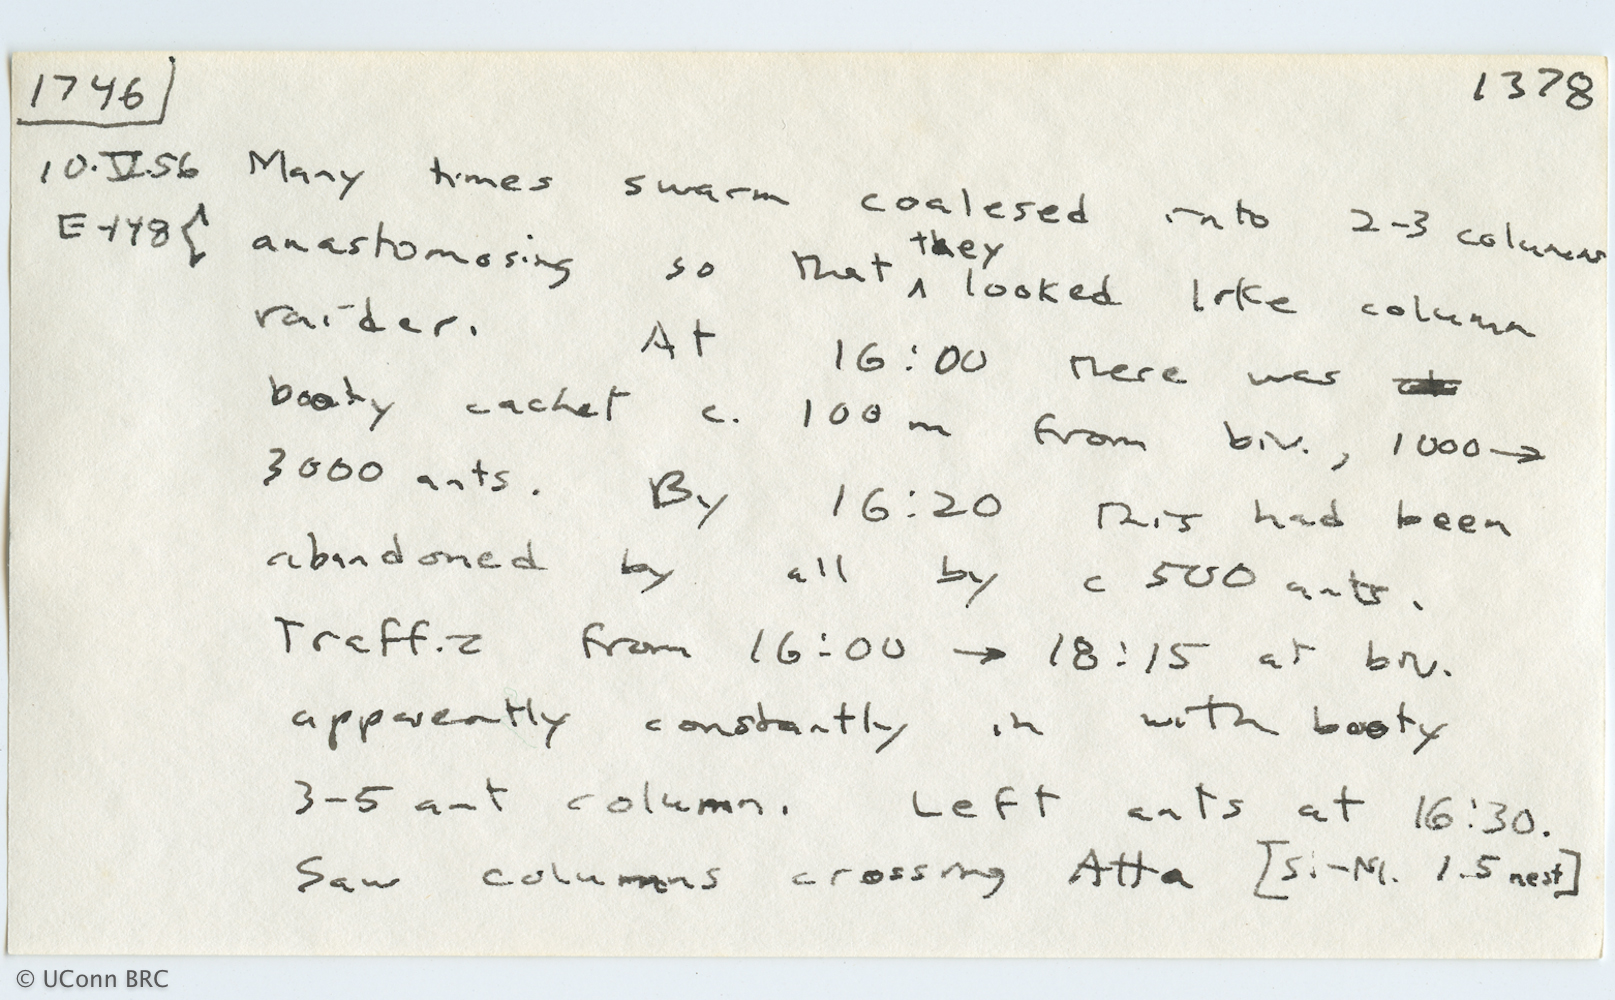 1746 1378
10.VI.56 Many times swarm coalesed into 2-3 columns
E-148{ anastomosing so that they looked like column
raider. At 16:00 there was
booty cachet c. 100 m from biv., 1000→
3000 ants. By 16:20 this had been
abandoned by all by c 500 ants.
Traffic from 16:00 → 18:15 at biv.
apparently constantly in with booty
3-5 ant column. Left ants at 16:30.
Saw columns crossing Atta [Si-N. 1.5 nest]
© UConn BRC